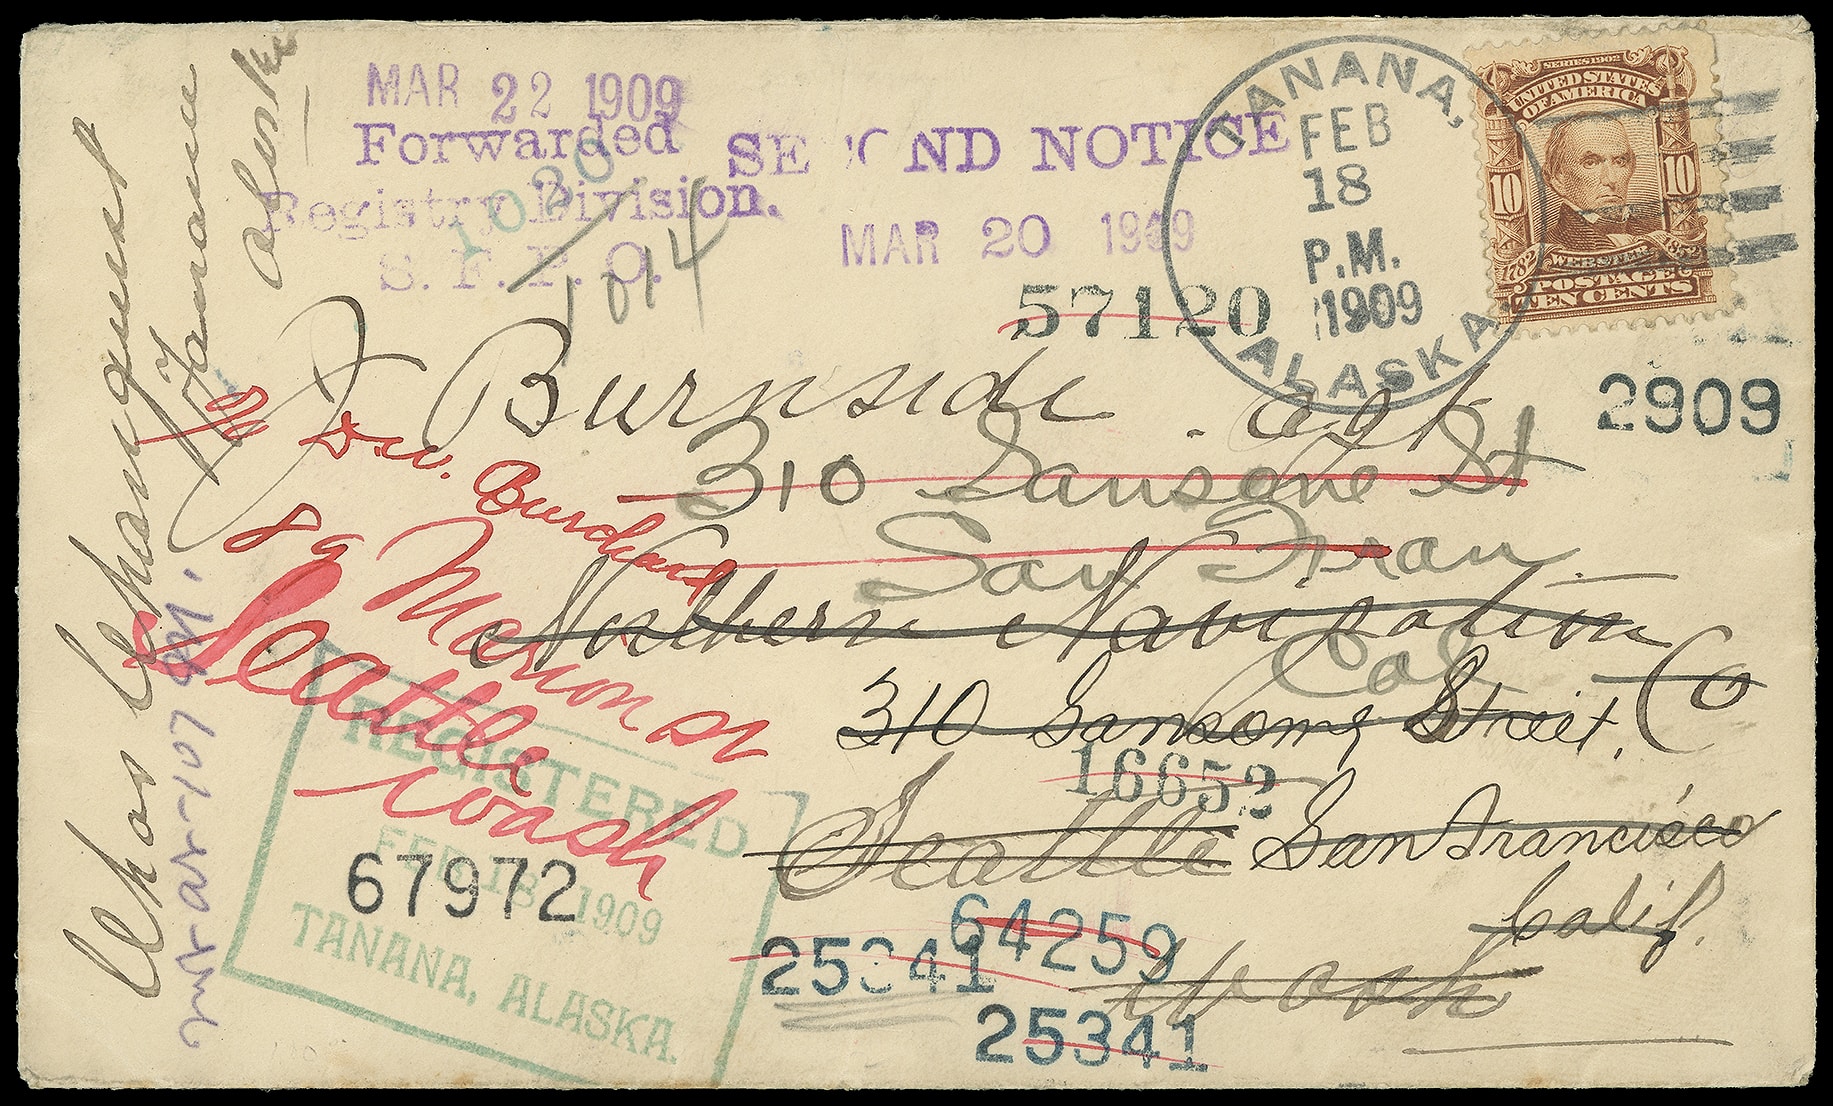 MAR 22 1909
Forwarded
Registry Division.
S. F. P. O.
1020
1014
SECOND NOTICE
MAR 20 1909
TANANA,
FEB
18
P.M.
1909
ALASKA.
SERIES 1902
UNITED STATES
OF AMERICA
10 10
1782 WEBSTER 1852
POSTAGE
TEN CENTS
57120
2909
J Burnside agt.
310 Sansome St
San Fran
Cal
Northern Navigation Co
310 Sansome Street.
16652
Seattle San Francisco
Calif.
Wash
Burchard
89 Marion St
Seattle
Wash
REGISTERED
FEB 18 1909
TANANA, ALASKA.
67972
64259
25341
25341
Chas
Tanana
Alaska